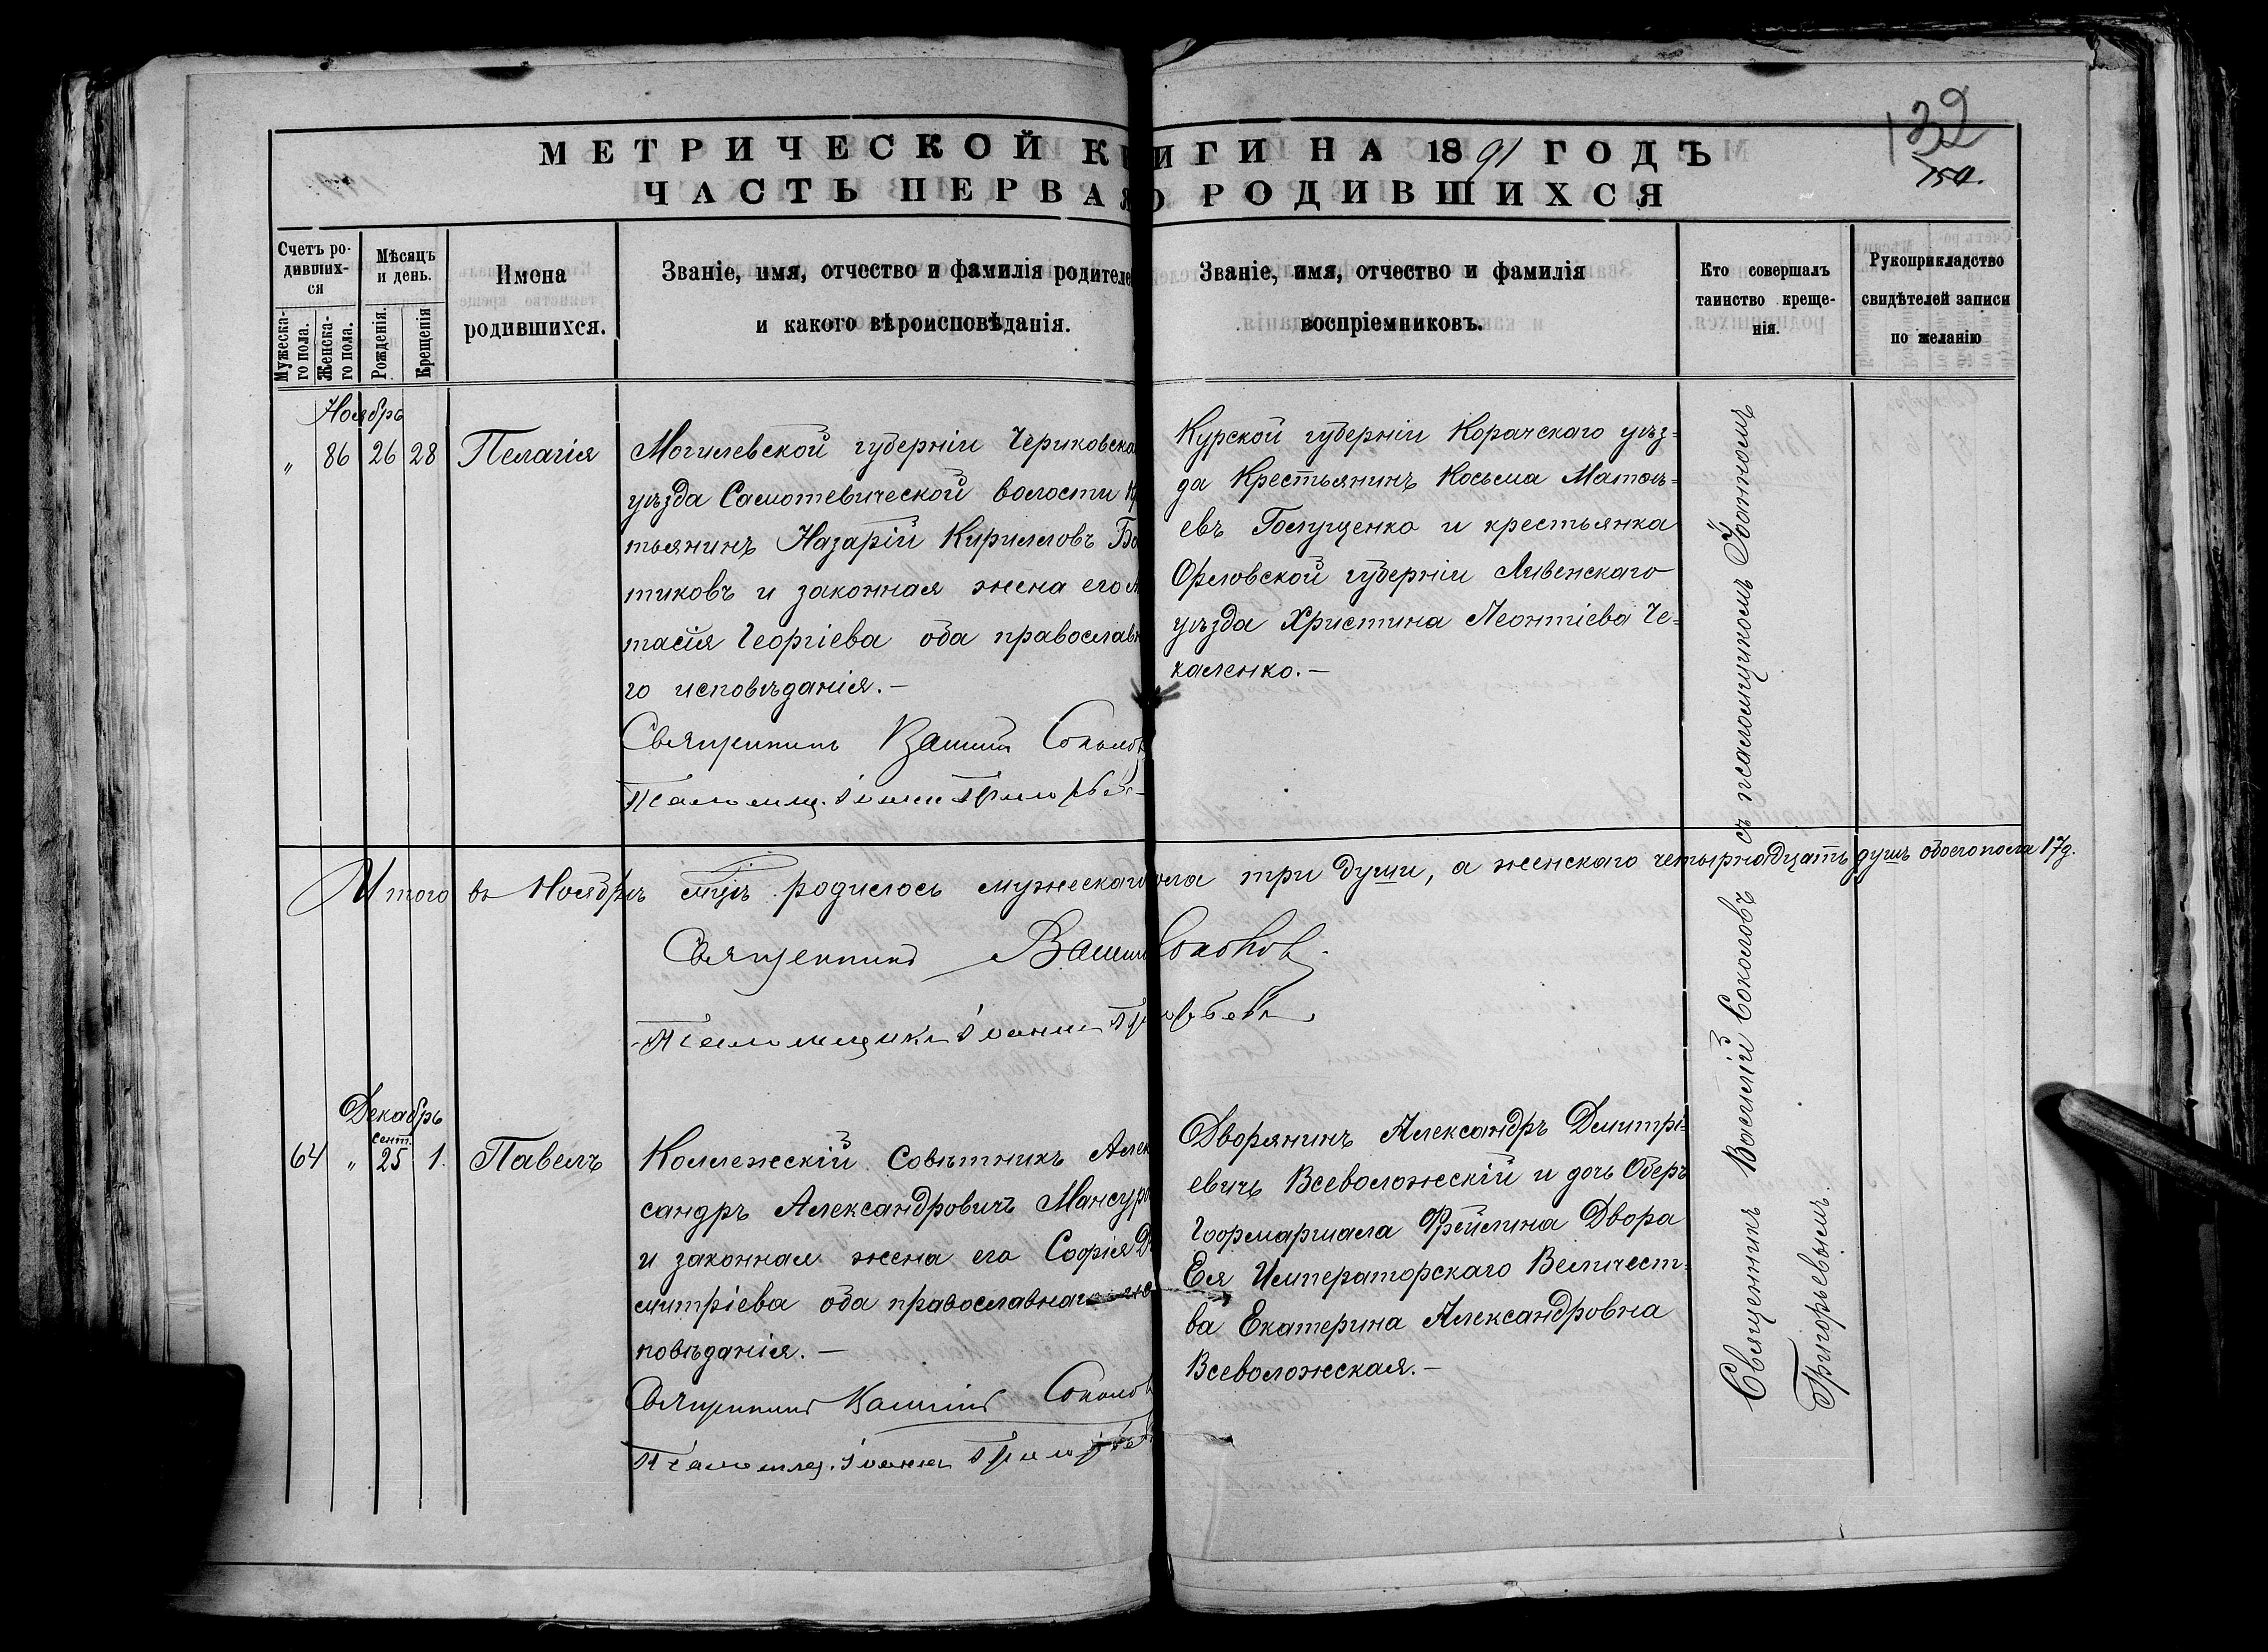 132
150.
МЕТРИЧЕСКОЙ КНИГИ НА 1891 ГОДЪ
ЧАСТЬ ПЕРВАЯ О РОДИВШИХСЯ
Счетъ ро-
дивших-
ся
Мужеска-
го пола.
Женска-
го пола.
Мѣсяцъ
и день.
Рожденія.
Крещенія
Имена
родившихся.
Званіе, имя, отчество и фамилія родителе
и какого вѣроисповѣданія.
Званіе, имя, отчество и фамилія
воспріемниковъ.
Кто совершалъ
таинство креще-
нія.
Рукоприкладство
свидѣтелей записи
по желанію
Ноябрь
" 86 26 28 Пелагія
Могилевской губерніи Чериковска
уѣзда Самотевической волости К
тьянинъ Назарій Кирилловъ Бо
тиковъ и законная жена его А
тасія Георгіева оба православн
го исповѣданія.—
Священникъ Василій Соколов
Псаломщ. Іоаннъ Григорьев
Курской губерніи Корачскаго уѣз-
да Крестьянинъ Косьма Матвѣ-
евъ и крестьянка
Орловской губерніи Ливенскаго
уѣзда Христина Леонтіева Че-
каленко.—
Итого въ Ноябрѣ мцѣ родилось мужескаго пола три души, а женскаго четырнадцать душъ обоего пола 17д.
Священникъ Василій Соколов
Псаломщикъ Іоаннъ Григорьевъ
Декабрь
сент.
64 " 25 1. Павелъ
Коллежскій Совѣтникъ Алек
сандръ Александровичъ Мансуро
и законная жена его Софія Д
митріева оба православнаго ис
повѣданія.—
Священникъ Василій Соколов
Псаломщ. Іоаннъ Григорьев
Дворянинъ Александръ Дмитрі-
евичъ Всеволожскій и дочь Оберъ
Гофмаршала Фрейлина Двора
Ея Императорскаго Величест-
ва Екатерина Александровна
Всеволожская.—
Священникъ Василій Соколовъ съ псаломщикомъ Іоанномъ
Григорьевымъ.